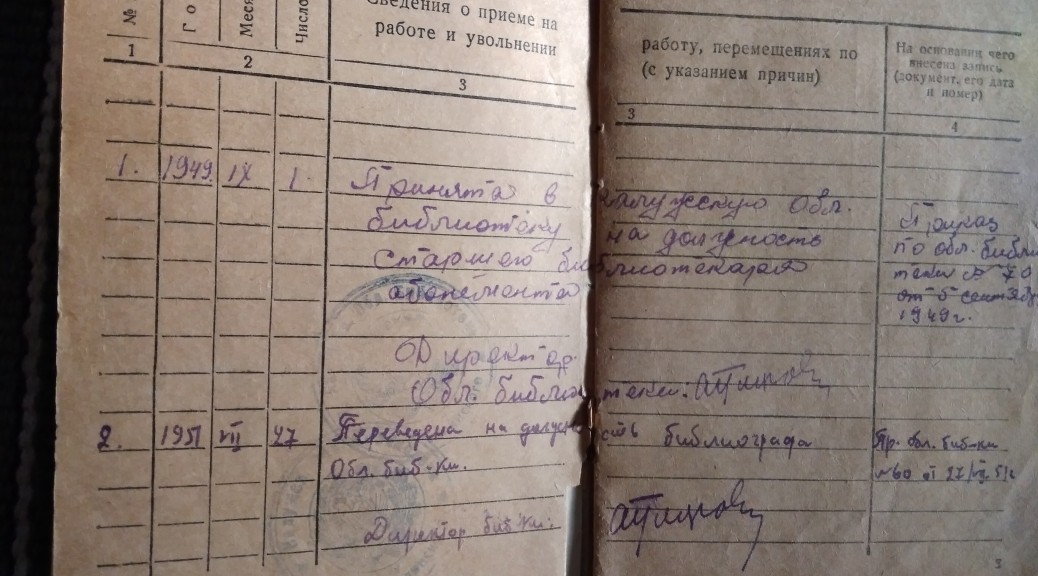 №
Год
Месяц
Число
Сведения о приеме на
работе и увольнении
работу, перемещениях по
(с указанием причин)
На основании чего
внесена запись
(документ, его дата
и номер)
1
2
3
3
4
1. 1949. IX 1. Принята в Калужскую Обл.
библиотеку на должность
старшего библиотекаря
абонемента
Приказ
по обл. библио
теки № 70
от 5 сентября
1949 г.
Директор
Обл. библиотеки:
2. 1951 VII 27 Переведена на должность библиографа
Обл. биб-ки.
Пр. обл. биб-ки
№ 60 от 27/VII 51 г.
Директор биб-ки:
5